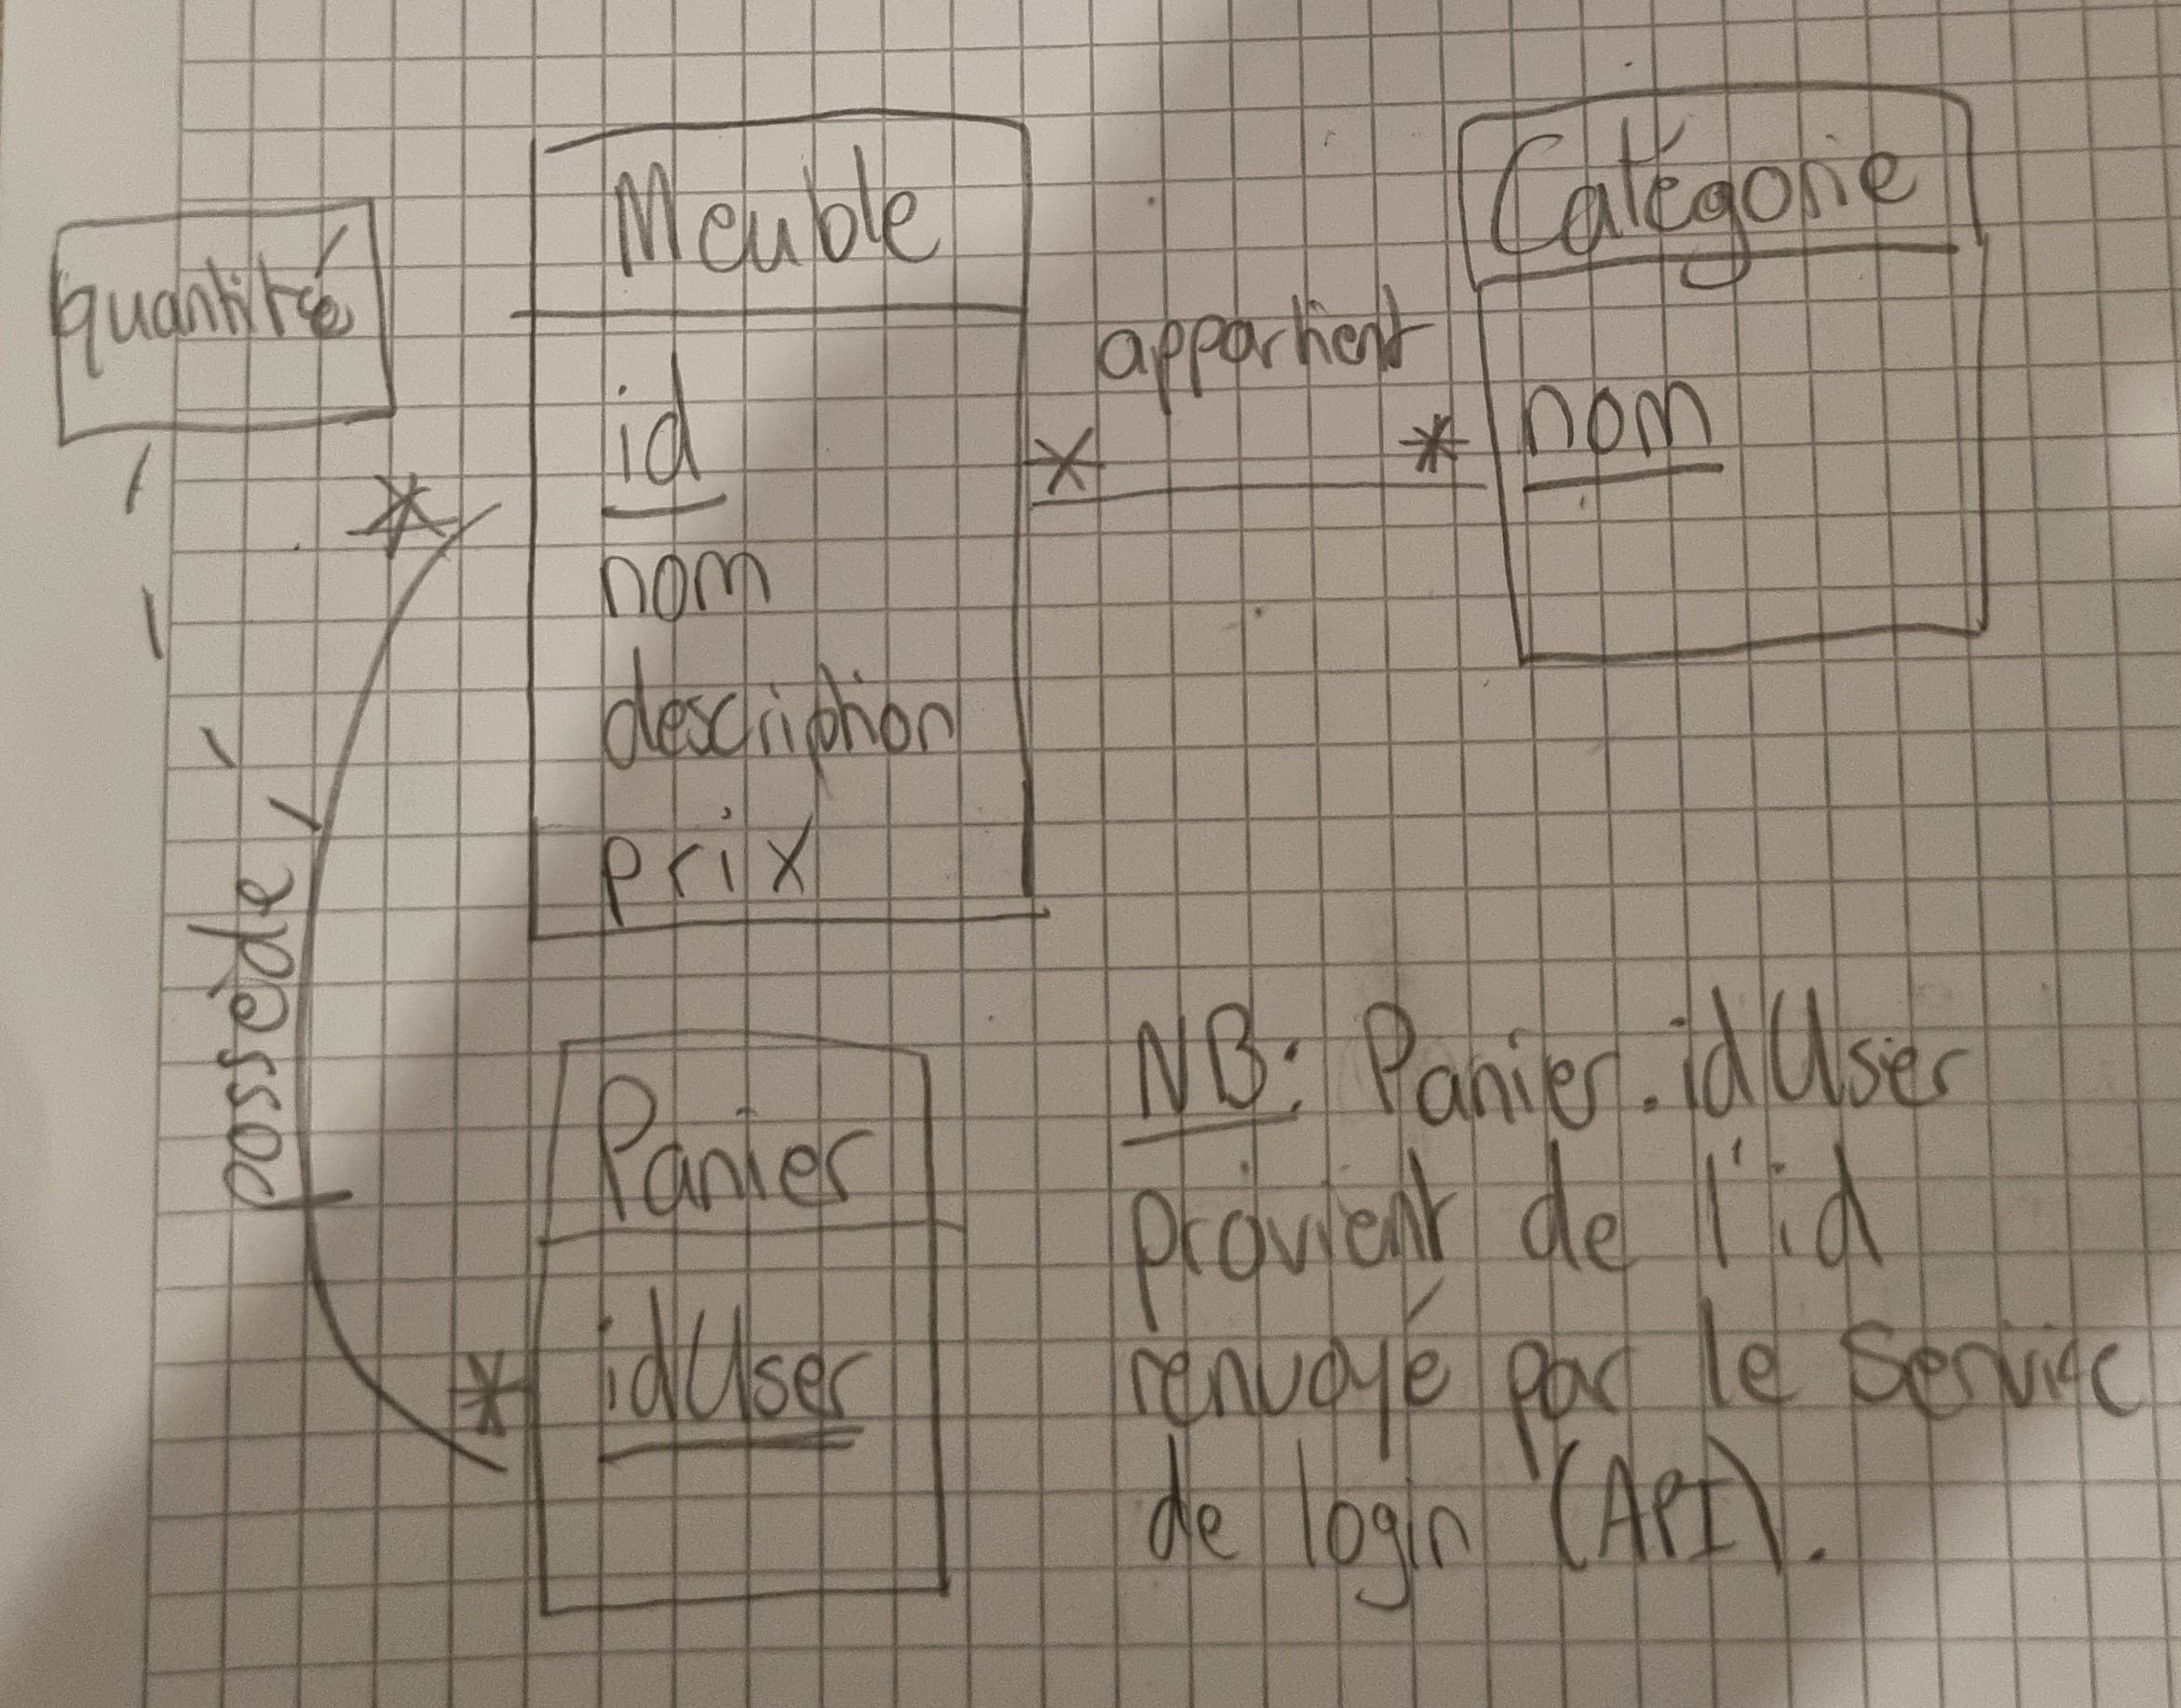 quantité
Meuble
id
nom
description
prix
*
*
appartient
*
Catégorie
nom
possède
*
Panier
idUser
NB: Panier.idUser
provient de l'id
renvoyé par le service
de login (API).